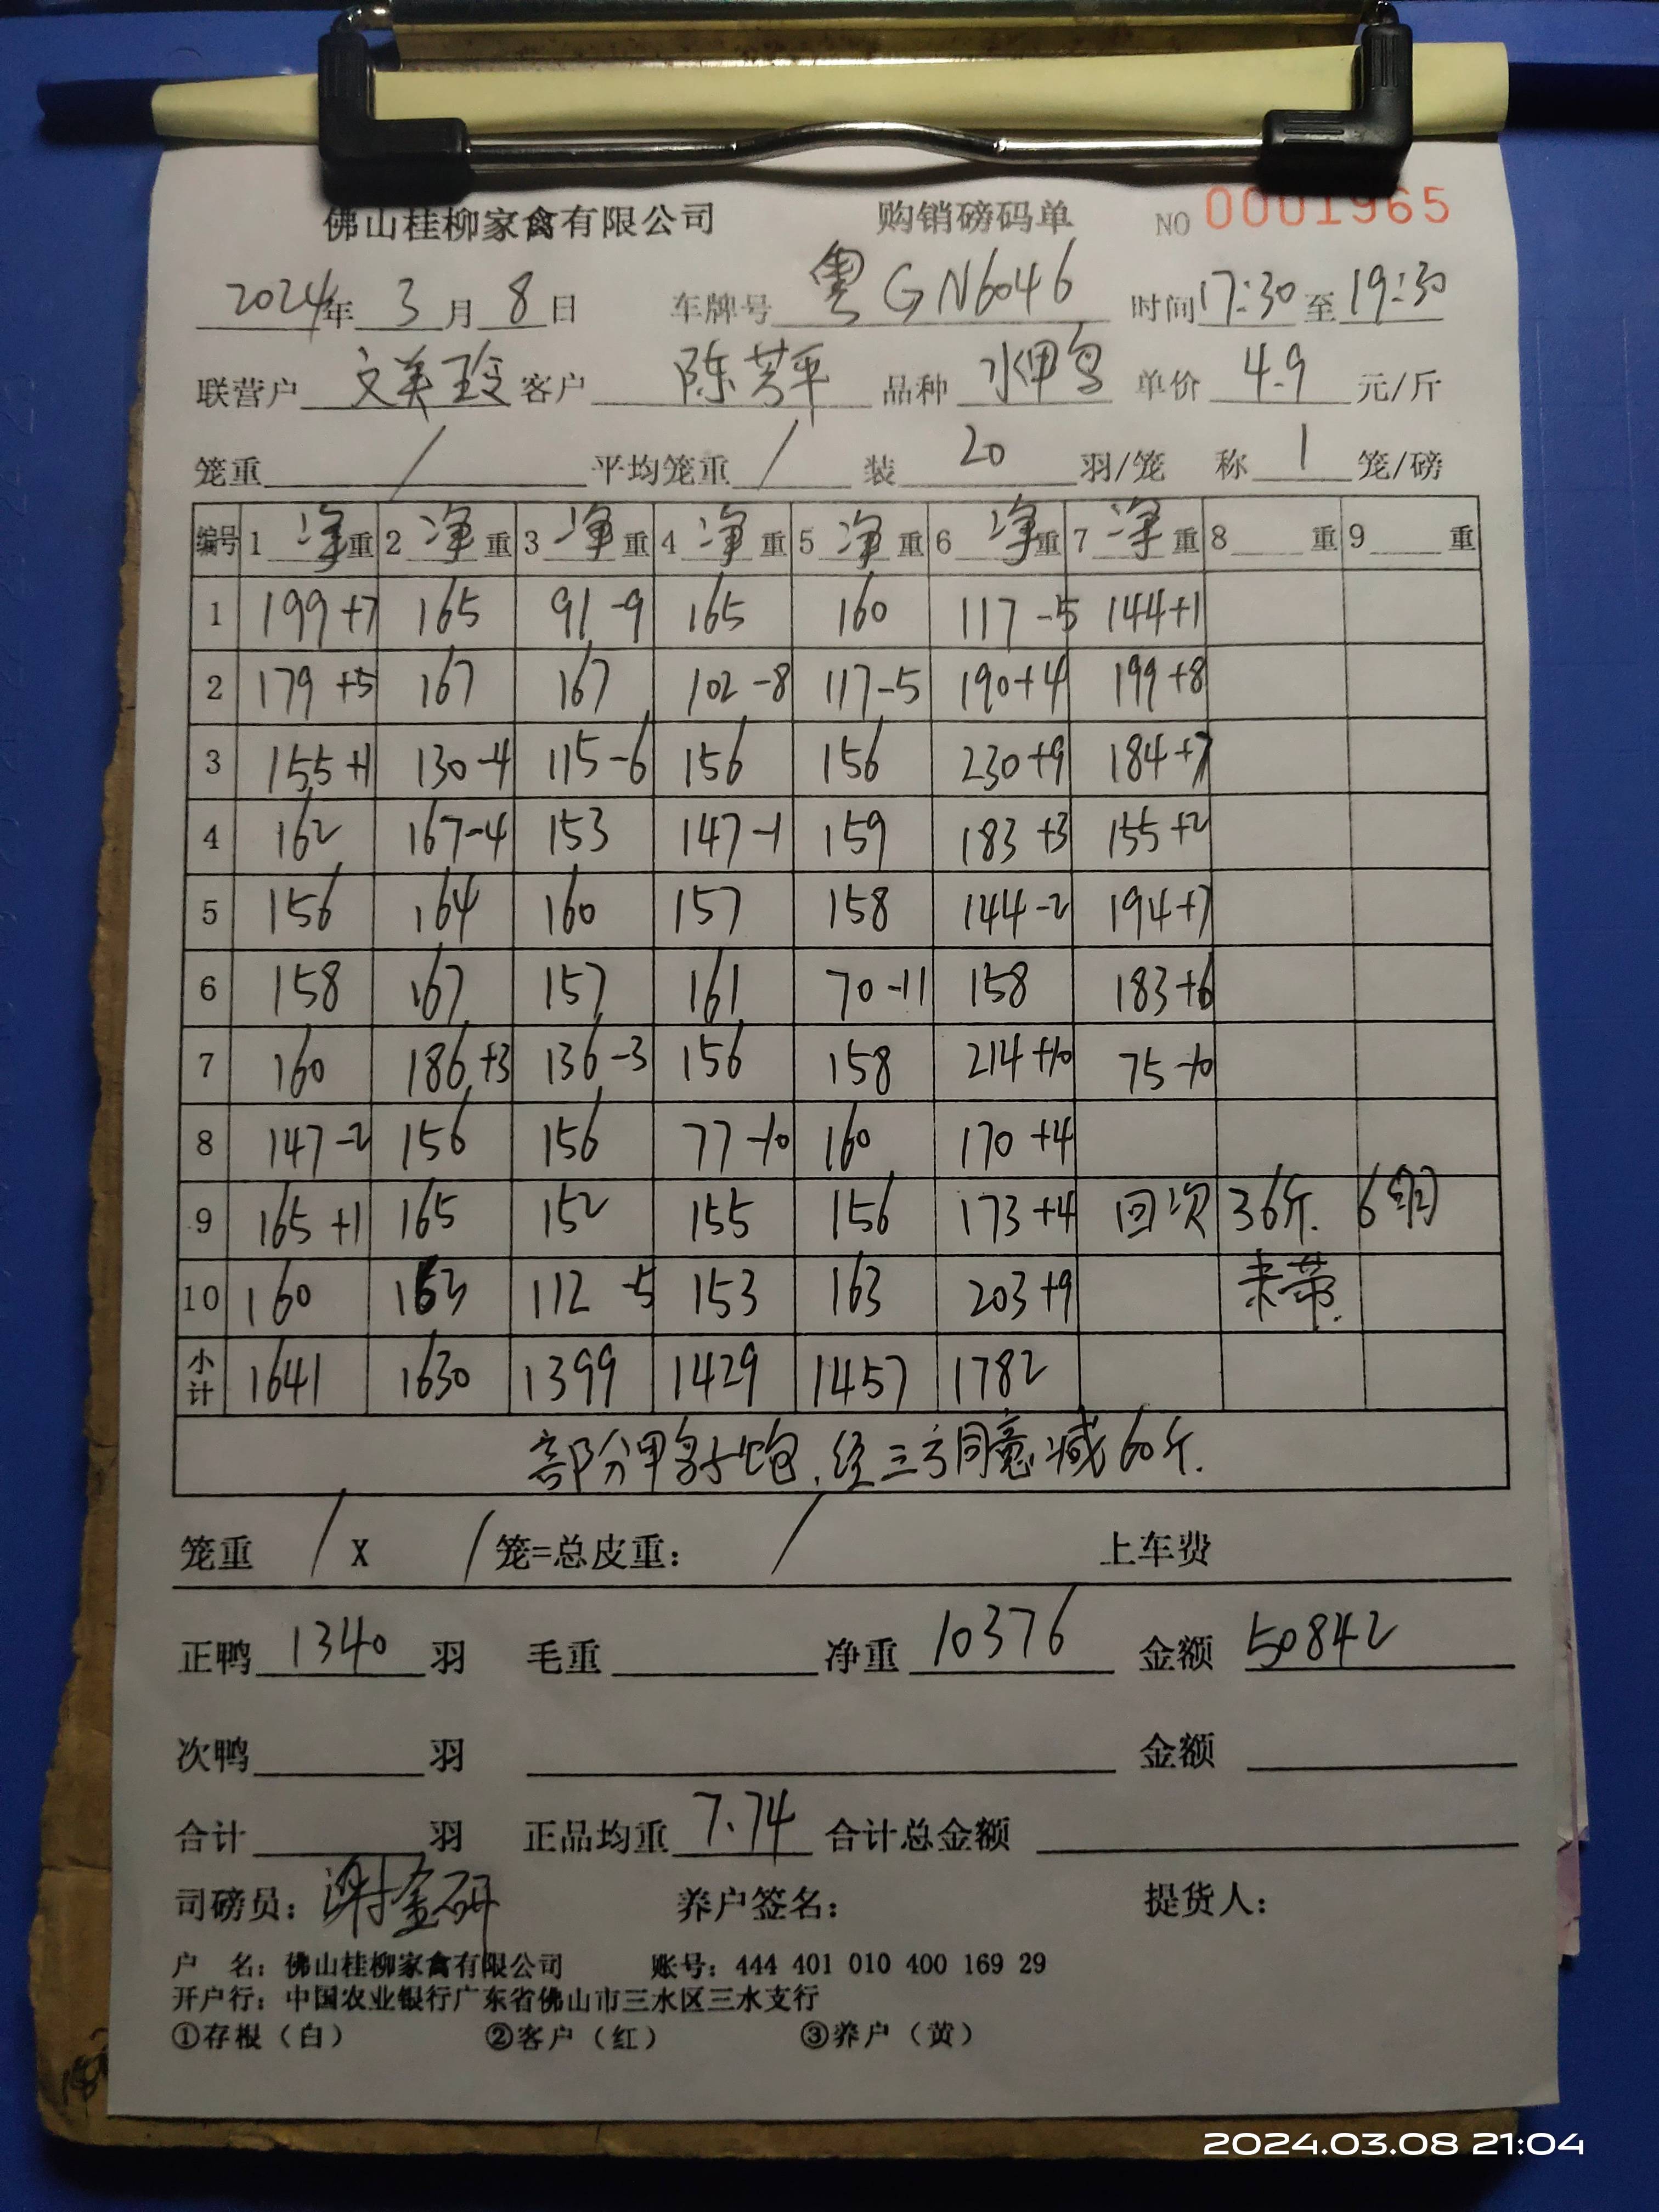 佛山桂柳家禽有限公司 购销磅码单 NO 0001965
2024年 3月 8日 车牌号 粤GN6046 时间17:30至19:30
联营户 文美玲 客户 陈芳平 品种 水鸭 单价 4.9 元/斤
笼重 / 平均笼重 / 装 20 羽/笼 称 1 笼/磅
编号 1 净重 2 净重 3 净重 4 净重 5 净重 6 净重 7 净重 8 重 9 重
1 199+7 165 91-9 165 160 117-5 144+1
2 179+5 167 167 102-8 117-5 190+4 199+8
3 155+1 130-4 115-6 156 156 230+9 184+7
4 162 167-4 153 147-1 159 183+3 155+2
5 156 164 160 157 158 144-2 194+7
6 158 167 157 161 70-11 158 183+6
7 160 186+3 136-3 156 158 214+10 75-10
8 147-2 156 156 77-10 160 170+4
9 165+1 165 152 155 156 173+4 回次 36斤. 6
10 160 163 112-5 153 163 203+9 未带.
小计 1641 1630 1399 1429 1457 1782
部分 经三方同意减60斤.
笼重 / x / 笼=总皮重: / 上车费
正鸭 1340 羽 毛重 净重 10376 金额 50842
次鸭 羽 金额
合计 羽 正品均重 7.74 合计总金额
司磅员: 谢金研 养户签名: 提货人:
户 名: 佛山桂柳家禽有限公司 账号: 444 401 010 400 169 29
开户行: 中国农业银行广东省佛山市三水区三水支行
①存根（白） ②客户（红） ③养户（黄）
2024.03.08 21:04